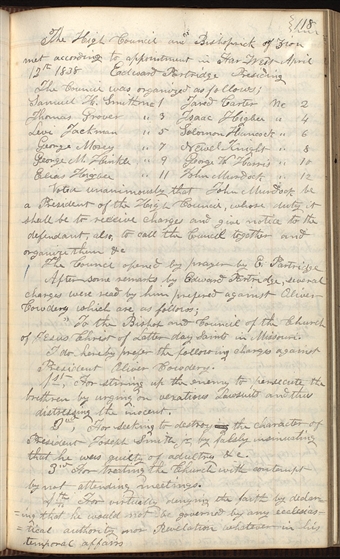 118
The High Council and Bishoprick of Zion
met according to appointment in Far West April
12th 1838 Edward Partridge Presiding
The Council was organized as follows;
Samuel H. Smith No 1 Jared Carter No 2
Thomas Grover " 3 Isaac Higbee " 4
Levi Jackman " 5 Solomon Hancock " 6
George Morey " 7 Newel Knight " 8
George M. Hinkle " 9 George W Harris " 10
Elias Higbee " 11 John Murdock " 12
Voted unanimously that John Murdock be
a President of the High Council, whose duty it
shall be to receive charges and give notice to the
defendant, also, to call the Council together and
organize them &c
The Council opened by prayer by E Partridge
After some remarks by Edward Partridge, several
charges were read by him prefered against Oliver
Cowdery which are as follows;
"To the Bishop and Council of the Church
of Jesus Christ of Latter day Saints in Missouri.
I do hereby prefer the following charges against
President Oliver Cowdery.
1st, For stiring up the enemy to persecute the
brethren by urging on vexatious Lawsuits and thus
distressing the inocent.
2nd, For seeking to destroy the character of
President Joseph Smith jr, by falsly insinuating
that he was guilty of adultry &c.
3rd For treating the Church with contempt
by not attending meetings.
4th For virtually denying the faith by declar-
ing that he would not be governed by any ecclesias-
tical authority nor Revelation whatever in his
temporal affairs